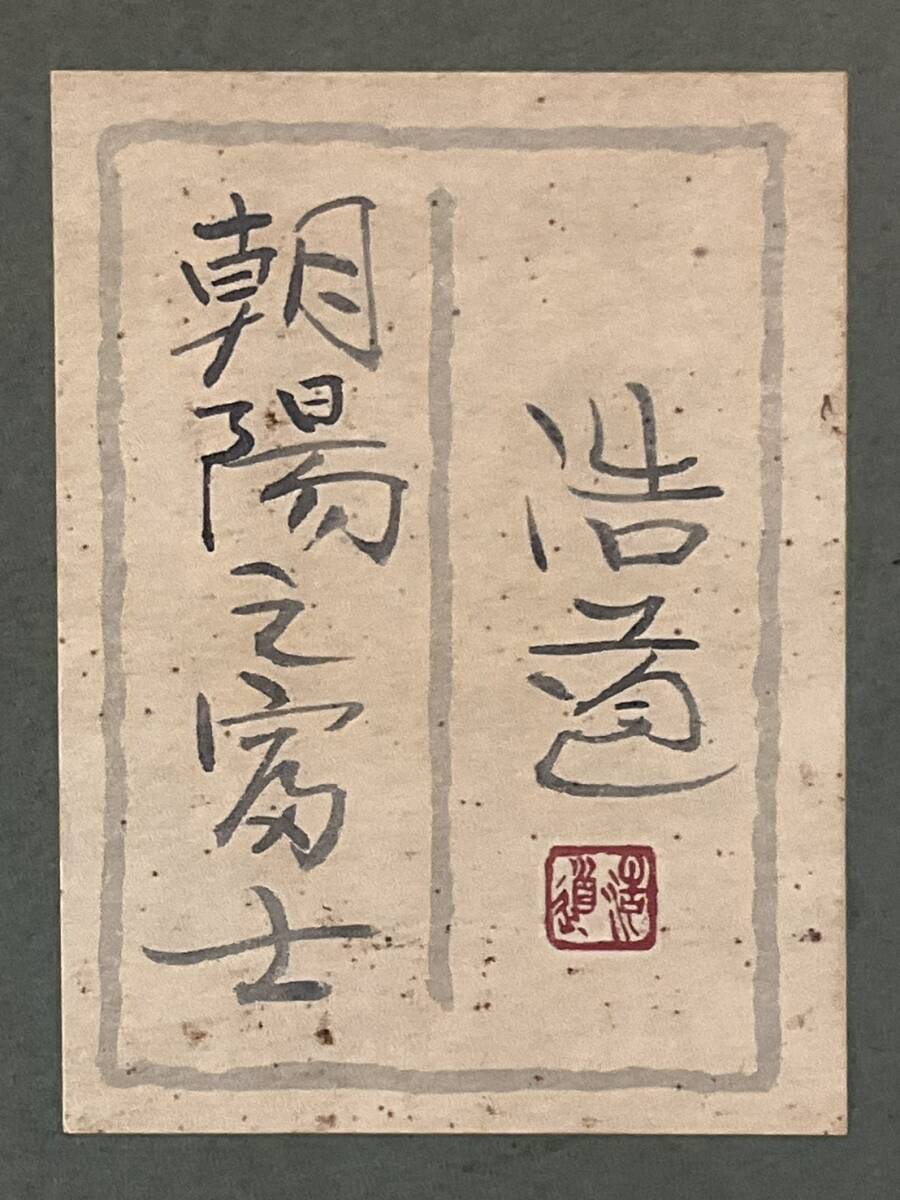 浩道
浩道
朝陽之富士